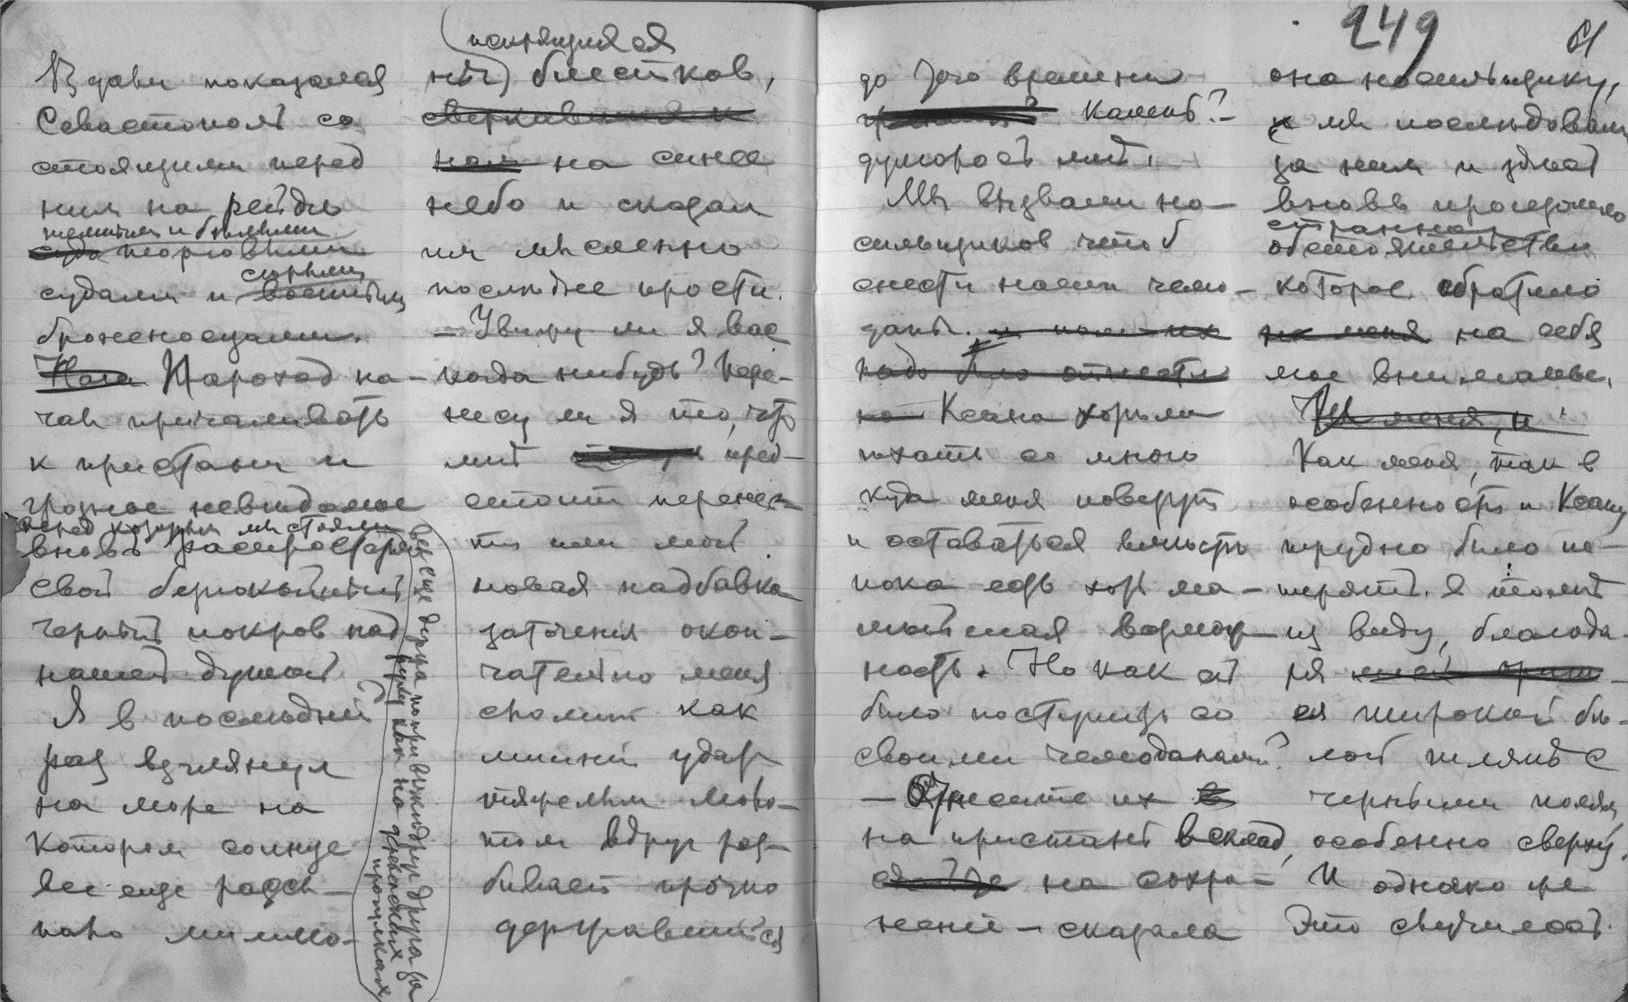 Вдали показался
Севастополь со
стоящими перед
ним на рейде
желтыми и белыми
торговыми
судами и серыми военными
броненосцами.
Наш Пароход на-
чал причаливать
к пристани и
грозное невидимое
перед которым мы стояли
вновь распростерло
свой безпокойный
черный покров над
нашей душой
Я в последний
раз взглянул
на море на
котором солнце
все еще разби-
вало миллио-
все еще держа по привычке друг друга за
руку как на
прогулках
(искрящихся
ны) блестков,
сверкивания и
нам на синее
небо и сказал
им мысленно
последнее прости.
— Увижу ли я вас
когда нибудь? Пере-
несу ли я то, что
мне пред-
стоит перенес-
ти или моя
новая надбавка
заточения окон-
чательно меня
сломит как
лишний удар
тяжелым моло-
том вдруг раз-
бивает прочно
державшийся
249
до того времени
камень? —
думалось мне.
Мы вызвали но-
сильщиков чтоб
снести наши чемо-
даны. и нам их
надо было отнести
но Ксана хотела
ехать со мною
куда меня повезут
и оставаться вместе
пока есть хоть ма-
лейшая возмож-
ность. Но как ей
было поступить со
своими чемоданами?
— Отнесите их в
на пристань в склад,
на сохра-
нение — сказала
она носильщику,
и мы последовали
за ним и здесь
вновь произошло
странное
обстоятельство
которое обратило
на меня на себя
мое внимание.
И меня, и
Как меня, так в
особенности и Ксану
трудно было по-
терять из виду, благода-
ря
ея широкой бе-
лой шляпе с
черными полями,
особенно сверху.
И однако же
Это случилось.